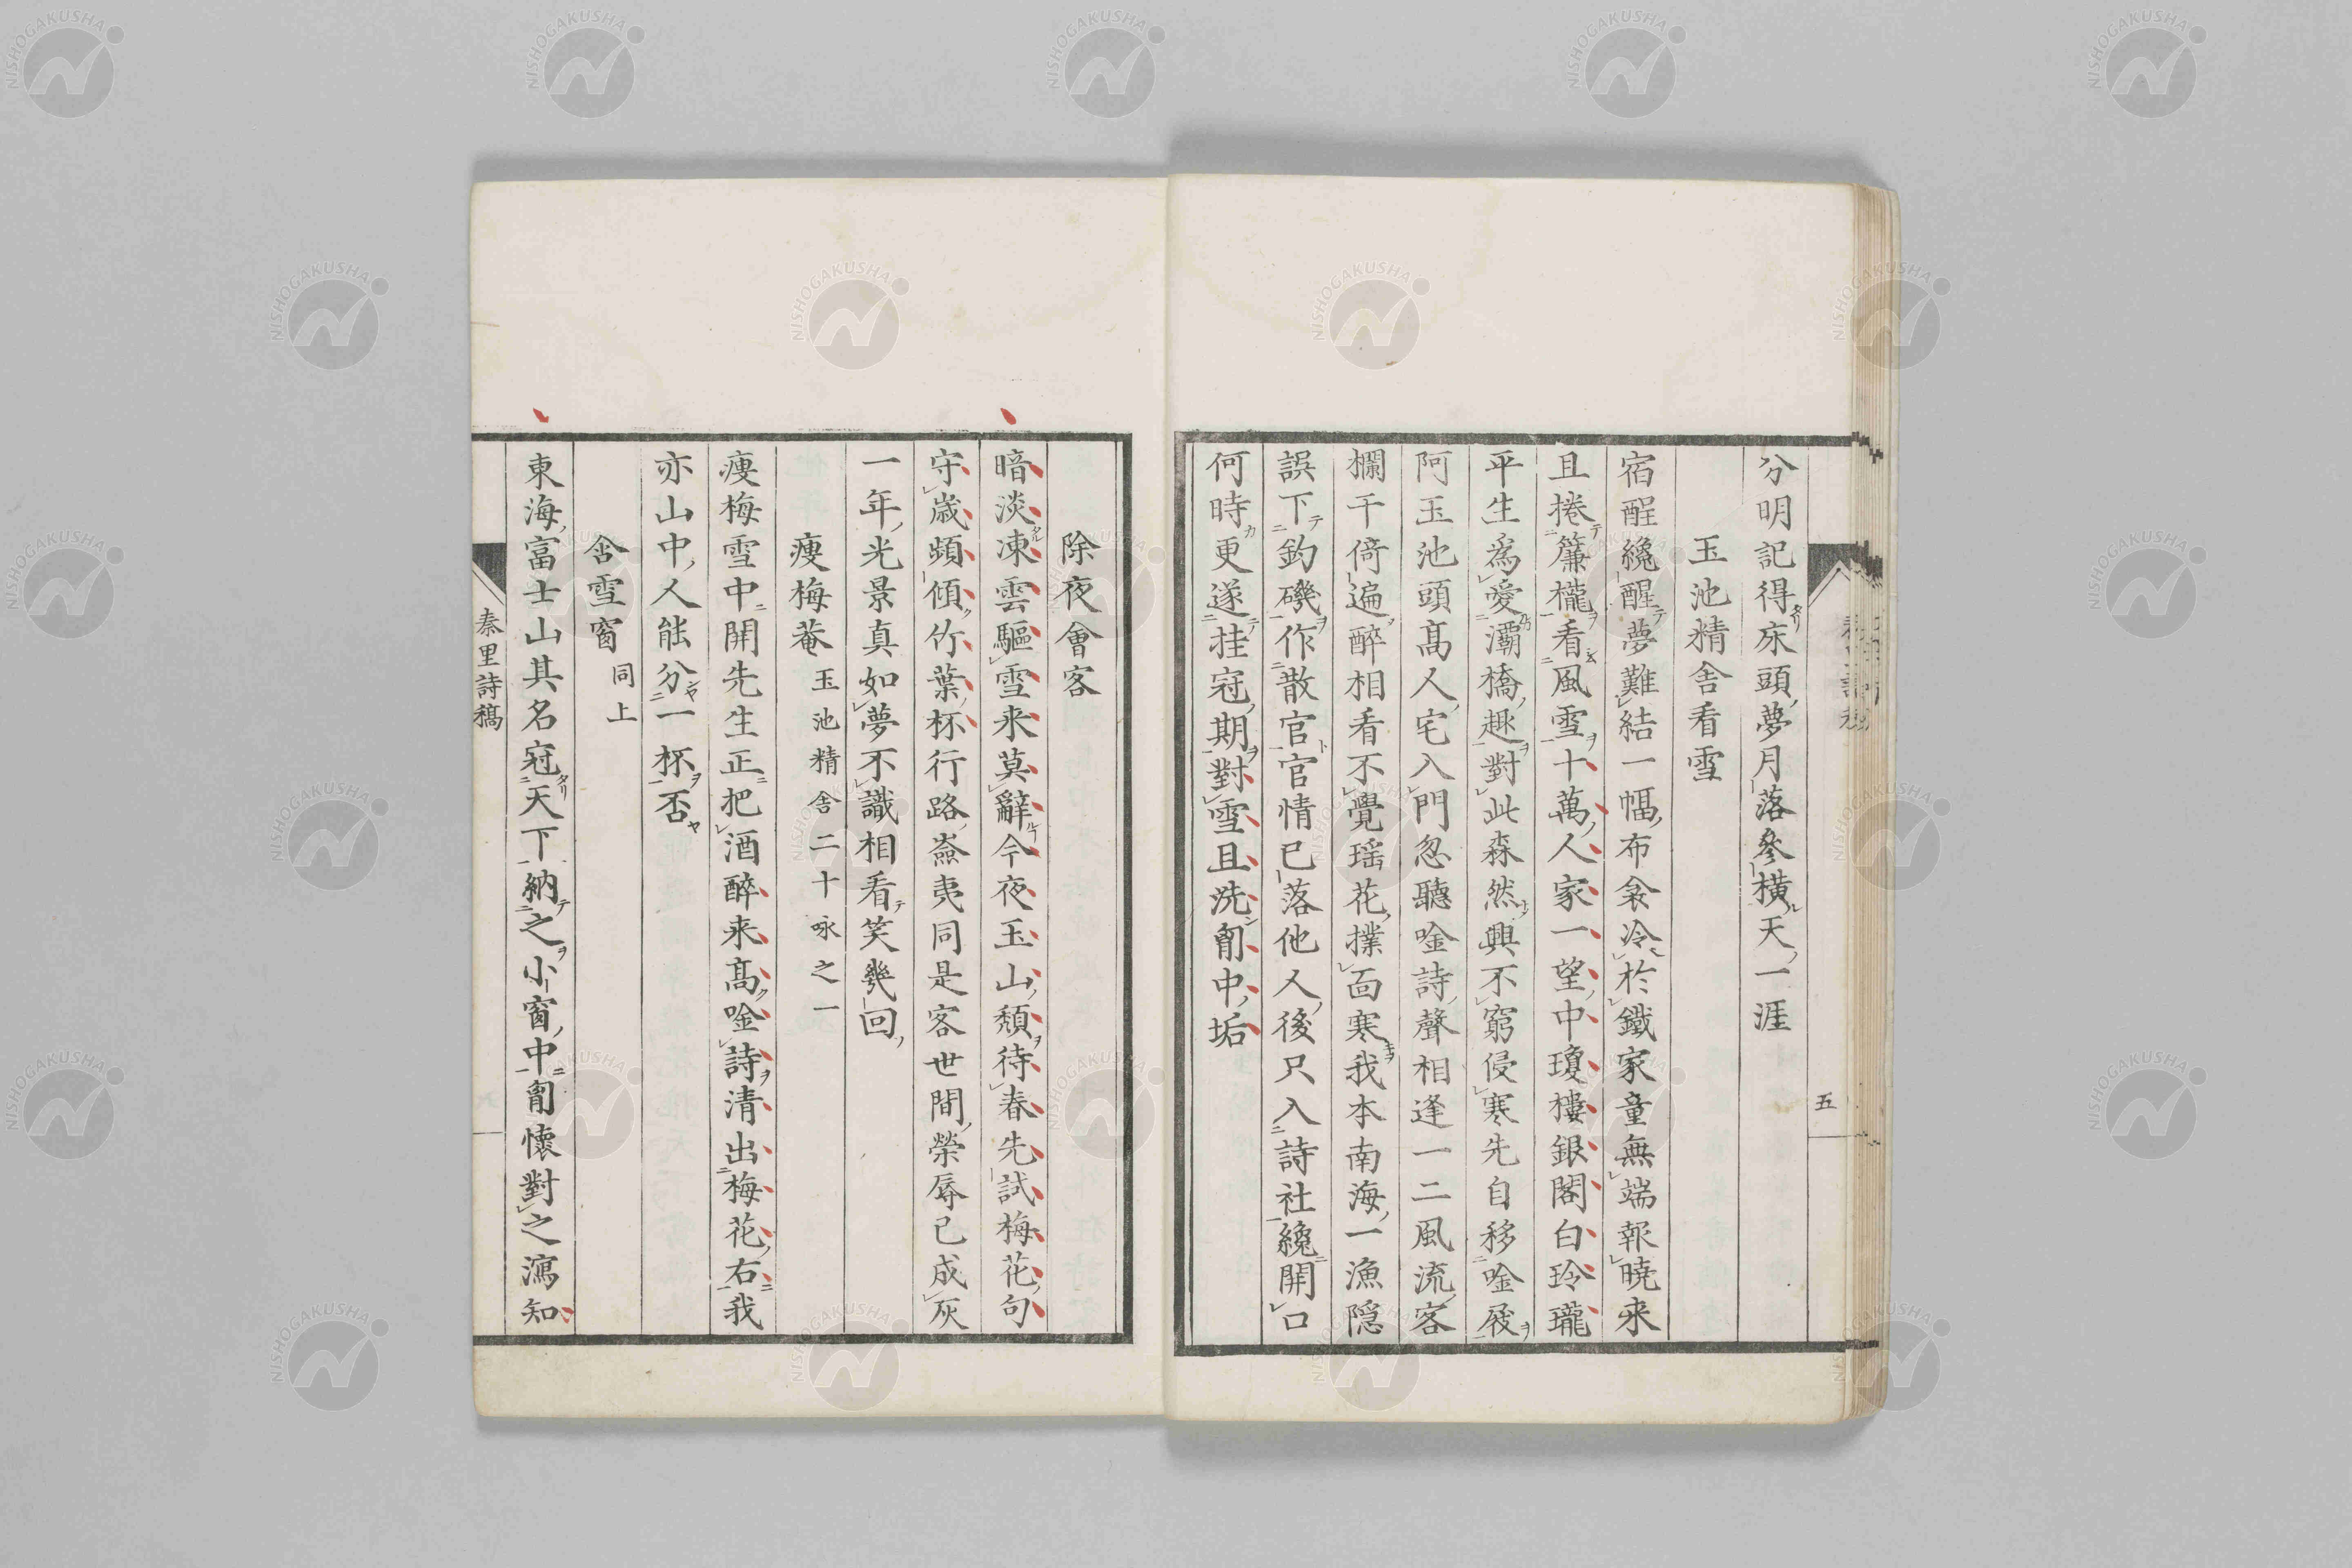 分明記得床頭夢月落參横天一涯
玉池精舎看雪
宿酲纔醒夢難結一幅布衾冷於鐵家童無端報曉来
且捲簾櫳看風雪十萬人家一望中瓊樓銀閣白玲瓏
平生爲愛灞橋趣對此森然興不窮侵寒先自移唫屐
阿玉池頭髙人宅入門忽聽唫詩聲相逢一二風流客
欄干倚遍醉相看不覺瑶花撲面寒我本南海一漁隠
誤下釣磯作散官官情已落他人後只入詩社纔開口
何時更遂挂冠期對雪且洗胷中垢
五
除夜會客
暗淡凍雲驅雪来莫辭今夜玉山頽待春先試梅花句
守歳頻傾竹葉杯行路嶮夷同是客世間榮辱已成灰
一年光景真如夢不識相看笑幾回
痩梅菴 玉池精舎二十咏之一
痩梅雪中開先生正把酒醉来髙唫詩清出梅花右我
亦山中人能分一杯否
含雪窗 同上
東海富士山其名冠天下納之小窗中胷懷對之瀉知
秦里詩稿